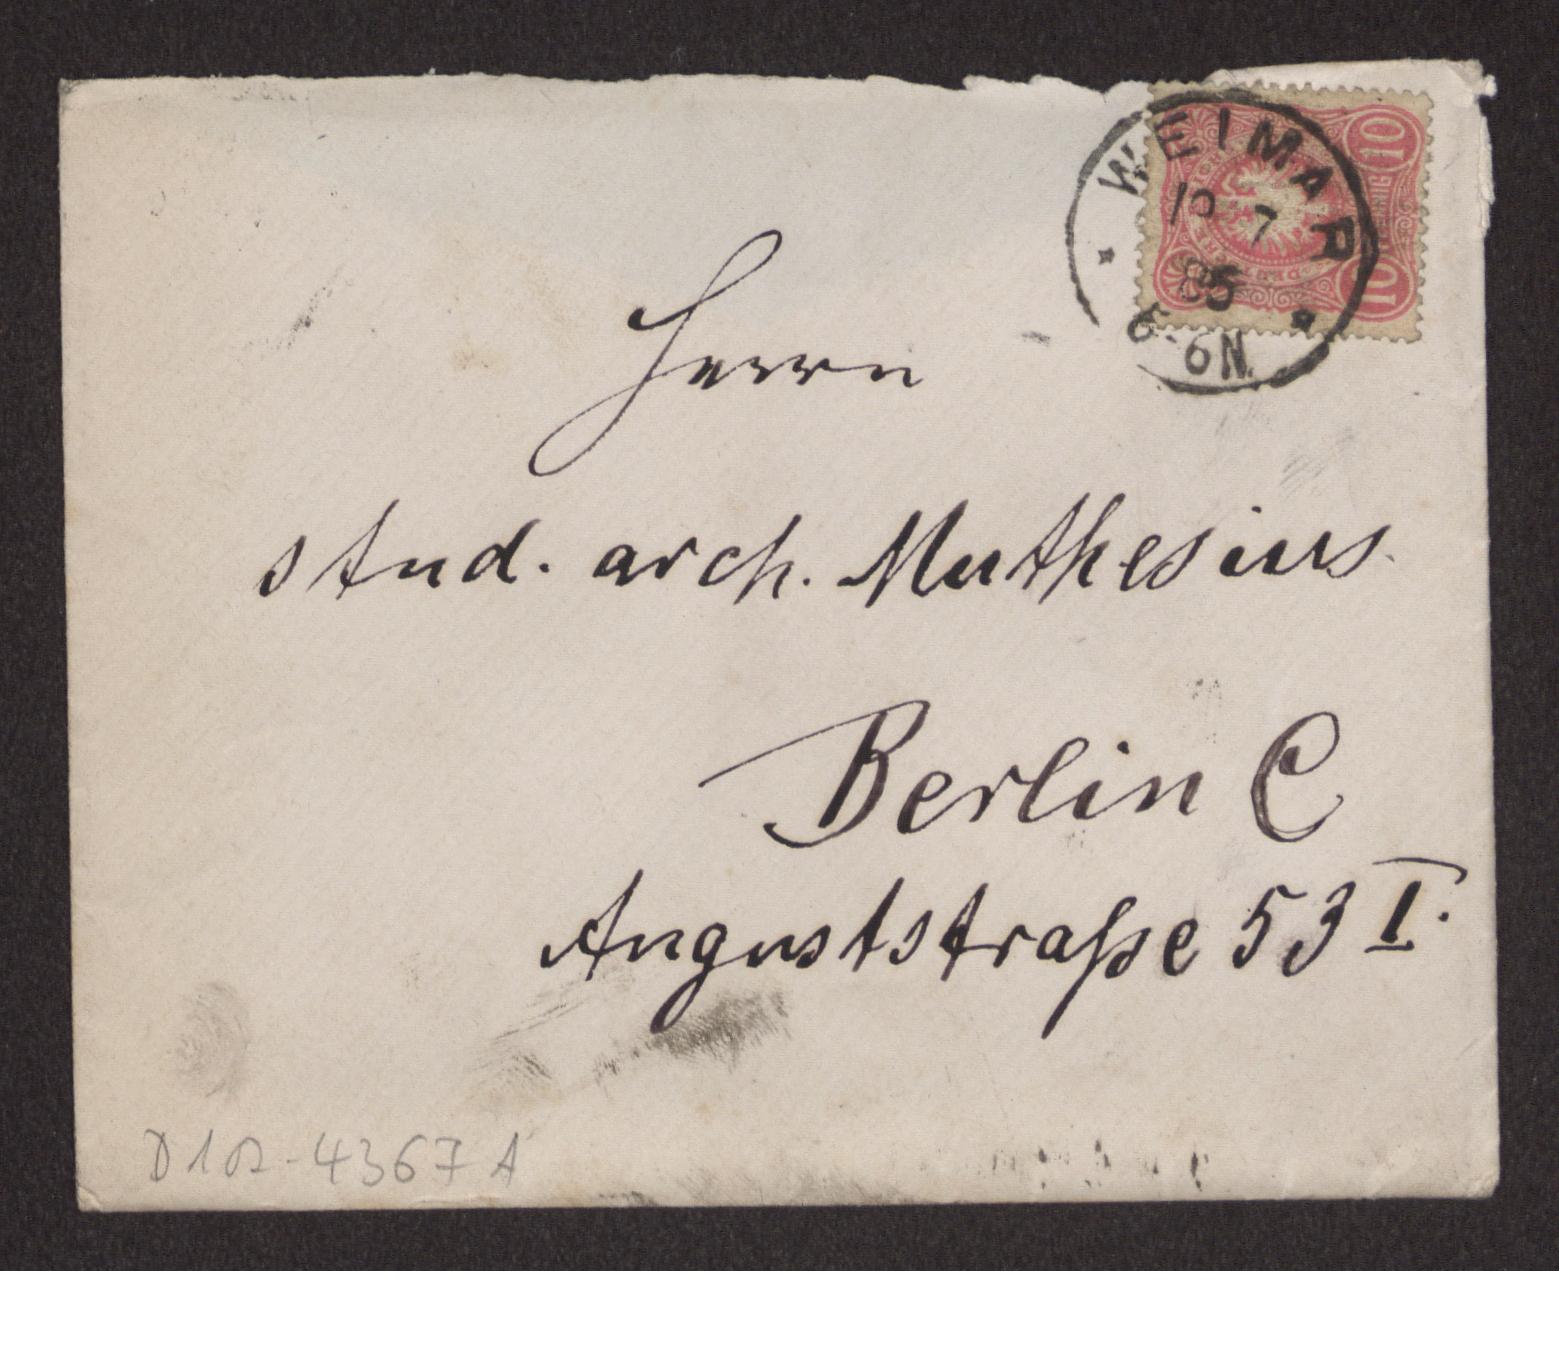 WEIMAR
7
85
5-6N.
10
10
Herrn
stud. arch. Muthesius.
Berlin C
Auguststraße 53 I.
D102-4367 A